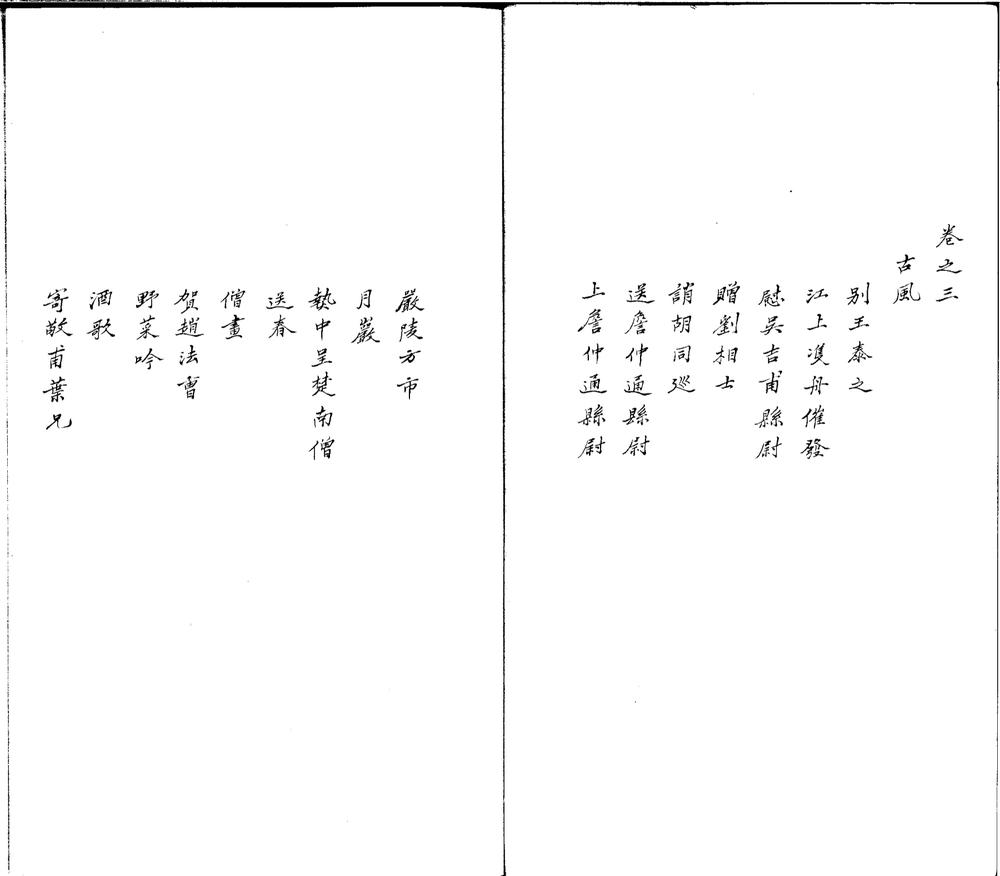 卷之三
古風
别王泰之
江上渡舟催發
慰吳吉甫縣尉
贈劉相士
誚胡同巡
送詹仲通縣尉
上詹仲通縣尉
嚴陵方市
月巖
埶中呈楚南僧
送春
僧畫
賀趙法曹
野菜吟
酒歌
寄敬甫葉兄